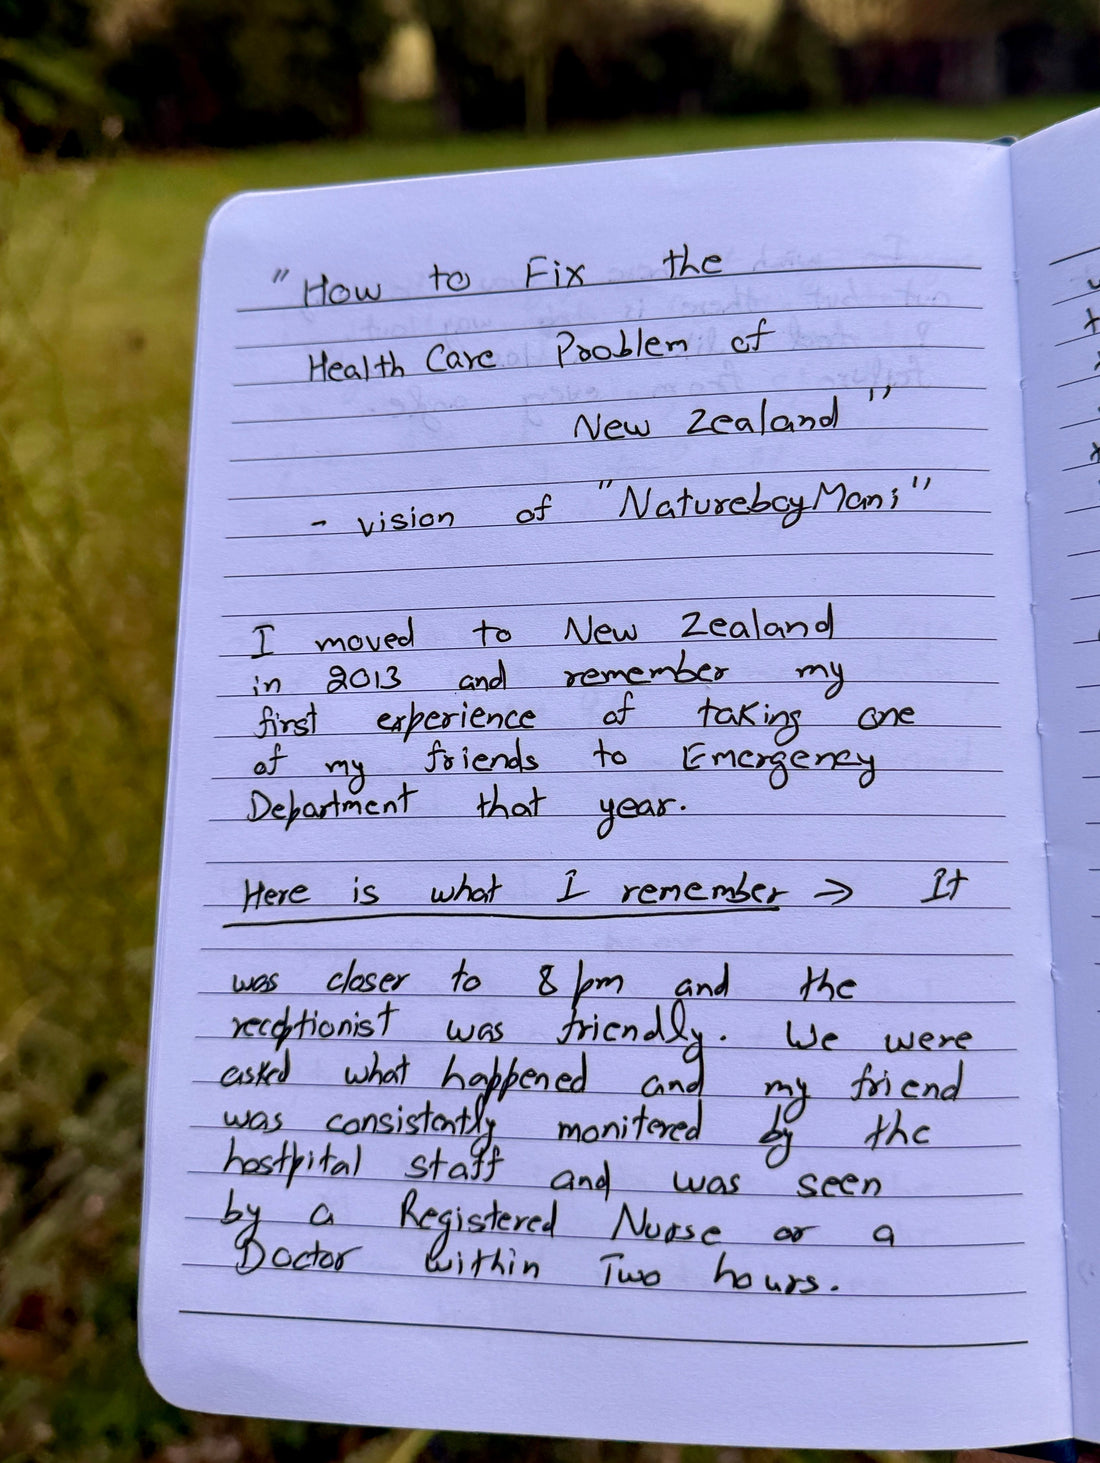 "How to Fix the
Health Care Problem of
New Zealand"
- vision of "NatureboyMani"
I moved to New Zealand
in 2013 and remember my
first experience of taking one
of my friends to Emergency
Department that year.
Here is what I remember → It
was closer to 8 pm and the
receptionist was friendly. We were
asked what happened and my friend
was consistantly monitered by the
hostpital staff and was seen
by a Registered Nurse or a
Doctor within Two hours.